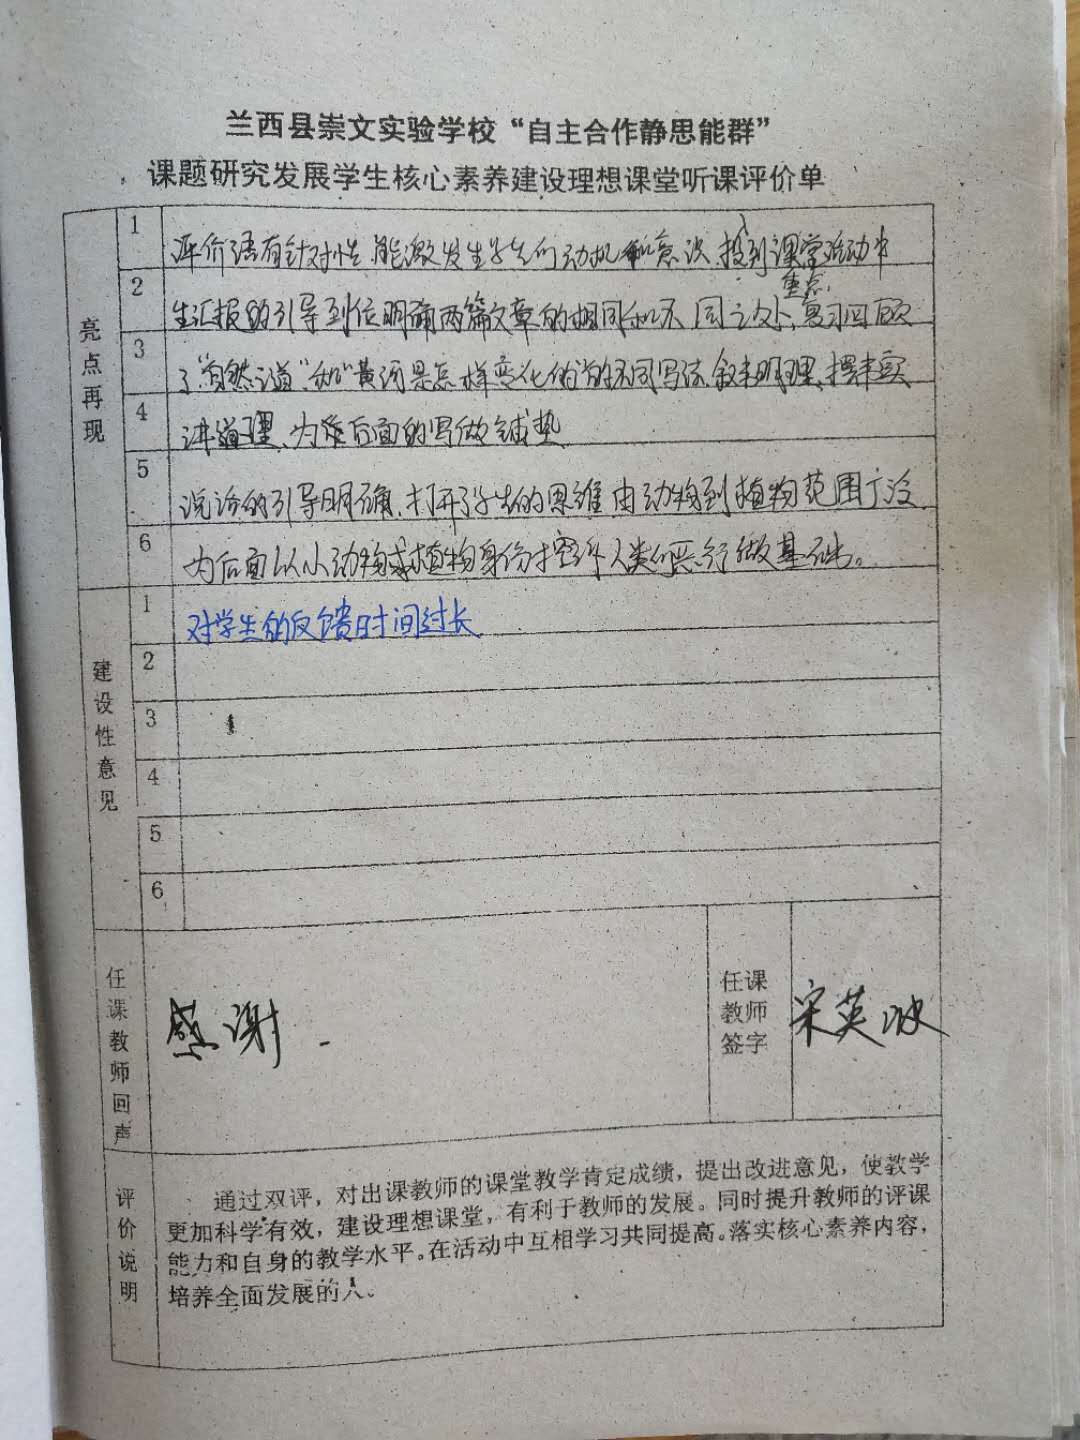 兰西县崇文实验学校“自主合作静思能群”
课题研究发展学生核心素养建设理想课堂听课评价单
亮点再现
1 评价语有针对性,能激发生学生们动机和意识,投到课堂活动中
重点,
2 生汇报的引导到位明确两篇文章的相同和不同之处、复习回顾
3 了“自然之道”和“黄河是怎样变化的”的不同写法,叙事明理、摆事实
4 讲道理、为后面的写做铺垫
5 说话的引导明确,打开了学生的思维由动物到植物范围广泛
6 为后面以小动物或植物身份控诉人类的恶行做基础。
建设性意见
1 对学生的反馈时间过长
2
3
4
5
6
任课教师回声
感谢
任课
教师
签字
宋英波
评价说明
通过双评,对出课教师的课堂教学肯定成绩,提出改进意见,使教学
更加科学有效,建设理想课堂,有利于教师的发展。同时提升教师的评课
能力和自身的教学水平。在活动中互相学习共同提高。落实核心素养内容,
培养全面发展的人。